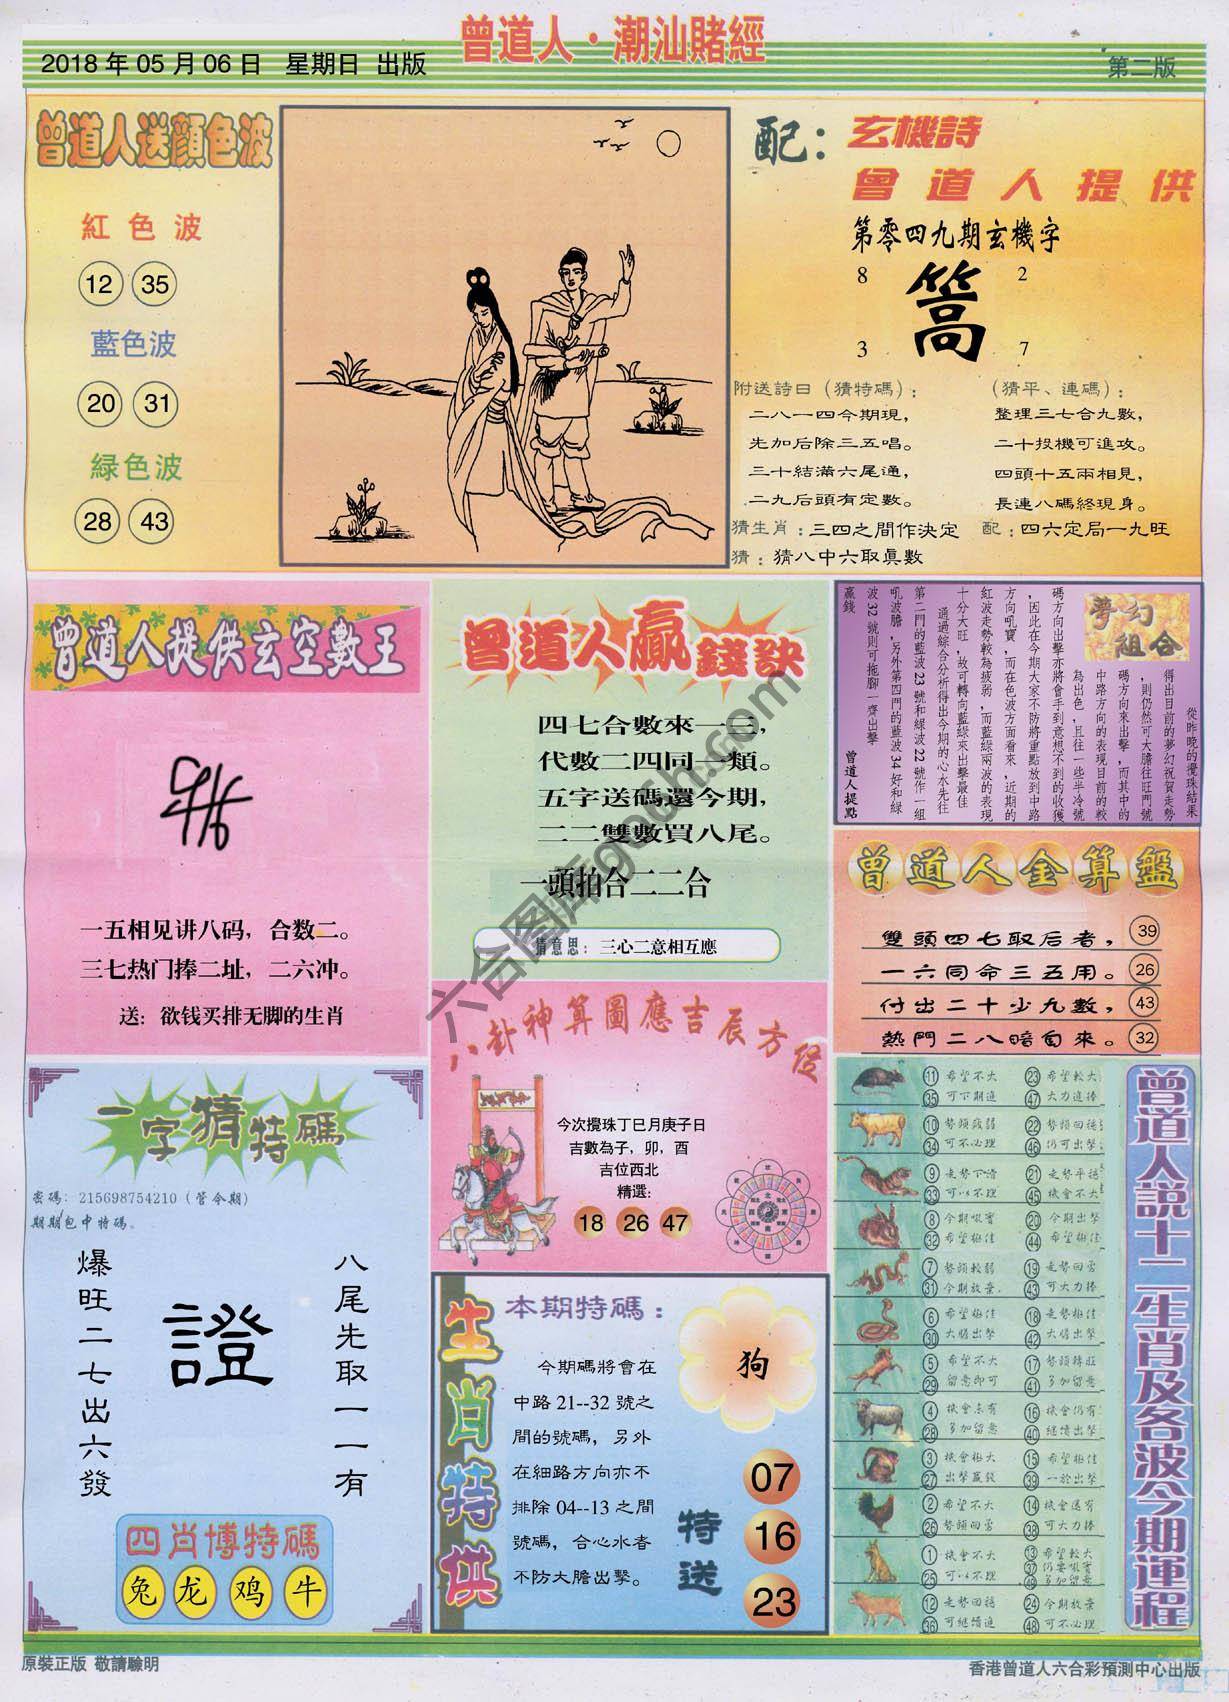 曾道人·潮汕賭經
2018 年 05 月 06 日 星期日 出版
第二版
曾道人送顏色波
紅色波
12 35
藍色波
20 31
緑色波
28 43
配：
玄機詩
曾道人提供
第零四九期玄機字
8 2
篙
3 7
附送詩曰（猜特碼）：
二八一四今期現，
先加后除三五唱。
三十結滿六尾通，
二九后頭有定數。
（猜平、連碼）：
整理三七合九數，
二十投機可進攻。
四頭十五兩相見，
長連八碼終現身。
猜生肖：三四之間作決定
配：四六定局一九旺
猜：猜八中六取眞數
曾道人提供玄空數王
一五相见讲八码，合数二。
三七热门捧二址，二六冲。
送：欲钱买排无脚的生肖
曾道人贏錢訣
四七合數來一三，
代數二四同一類。
五字送碼還今期，
二二雙數買八尾。
一頭拍合二二合
猜意思：三心二意相互應
夢幻組合
從昨晚的攪珠結果
得出目前的夢幻祝賀走勢
，則仍然可大膽往旺門號
碼方向來出擊，而其中的
中路方向的表現目前的較
為出色，且往一些半冷號
碼方向出擊亦將會手到意想不到的收獲
，因此在今期大家不防將重點放到中路
方向吼寶，而在色波方面看來，近期的
紅波走勢較為疲弱，而藍綠兩波的表現
十分大旺，故可轉向藍綠來出擊最佳
通過綜合分析得出今期的心水先往
第二門的藍波 23 號和綠波 22 號作一組
吼波膽，另外第四門的藍波 34 好和綠
波 32 號則可拖腳一齊出擊
贏錢
曾道人提點
曾道人金算盤
雙頭四七取后者， 39
一六同命三五用。 26
付出二十少九數， 43
熱門二八暗自來。 32
八卦神算圖應吉辰方位
今次攪珠丁巳月庚子日
吉數為子，卯，酉
吉位西北
精選：
18 26 47
一字猜特碼
密碼：215698754210（管令期）
期期包中特碼。
爆旺二七出六發
證
八尾先取一一有
四肖博特碼
兔 龙 鸡 牛
生肖特供
本期特碼：
今期碼將會在
中路 21--32 號之
間的號碼，另外
在細路方向亦不
排除 04--13 之間
號碼，合心水者
不防大膽出擊。
狗
特送
07
16
23
曾道人說十二生肖及各波今期運程
11 希望不大 23 希望較大
35 可下期進 47 大力追捧
10 勢頭疲弱 22 勢頭回穩
34 可不必理 46 仍可出擊
9 走勢下滑 21 走勢平穩
33 可以不理 45 機會不大
8 今期吼寶 20 今期出擊
32 希望極佳 44 希望極佳
7 勢頭較弱 19 走勢回勇
31 今期放棄 43 可大力捧
6 希望極佳 18 走勢極佳
30 大膽出擊 42 大膽出擊
5 希望不大 17 勢頭轉旺
29 留意即可 41 多加留意
4 機會未有 16 機會仍有
28 多加留意 40 繼續出擊
3 機會極大 15 希望極佳
27 出擊贏錢 39 一於出擊
2 希望不大 14 機會還有
26 勢頭回勇 38 可大力捧
1 機會不大 13 希望較大
25 可以不理 37 仍要吼寶
49 多加留意
12 走勢回穩 24 今期放棄
36 可繼續進 48 可不必理
原裝正版 敬請驗明
香港曾道人六合彩預測中心出版
六合图库go6h.com